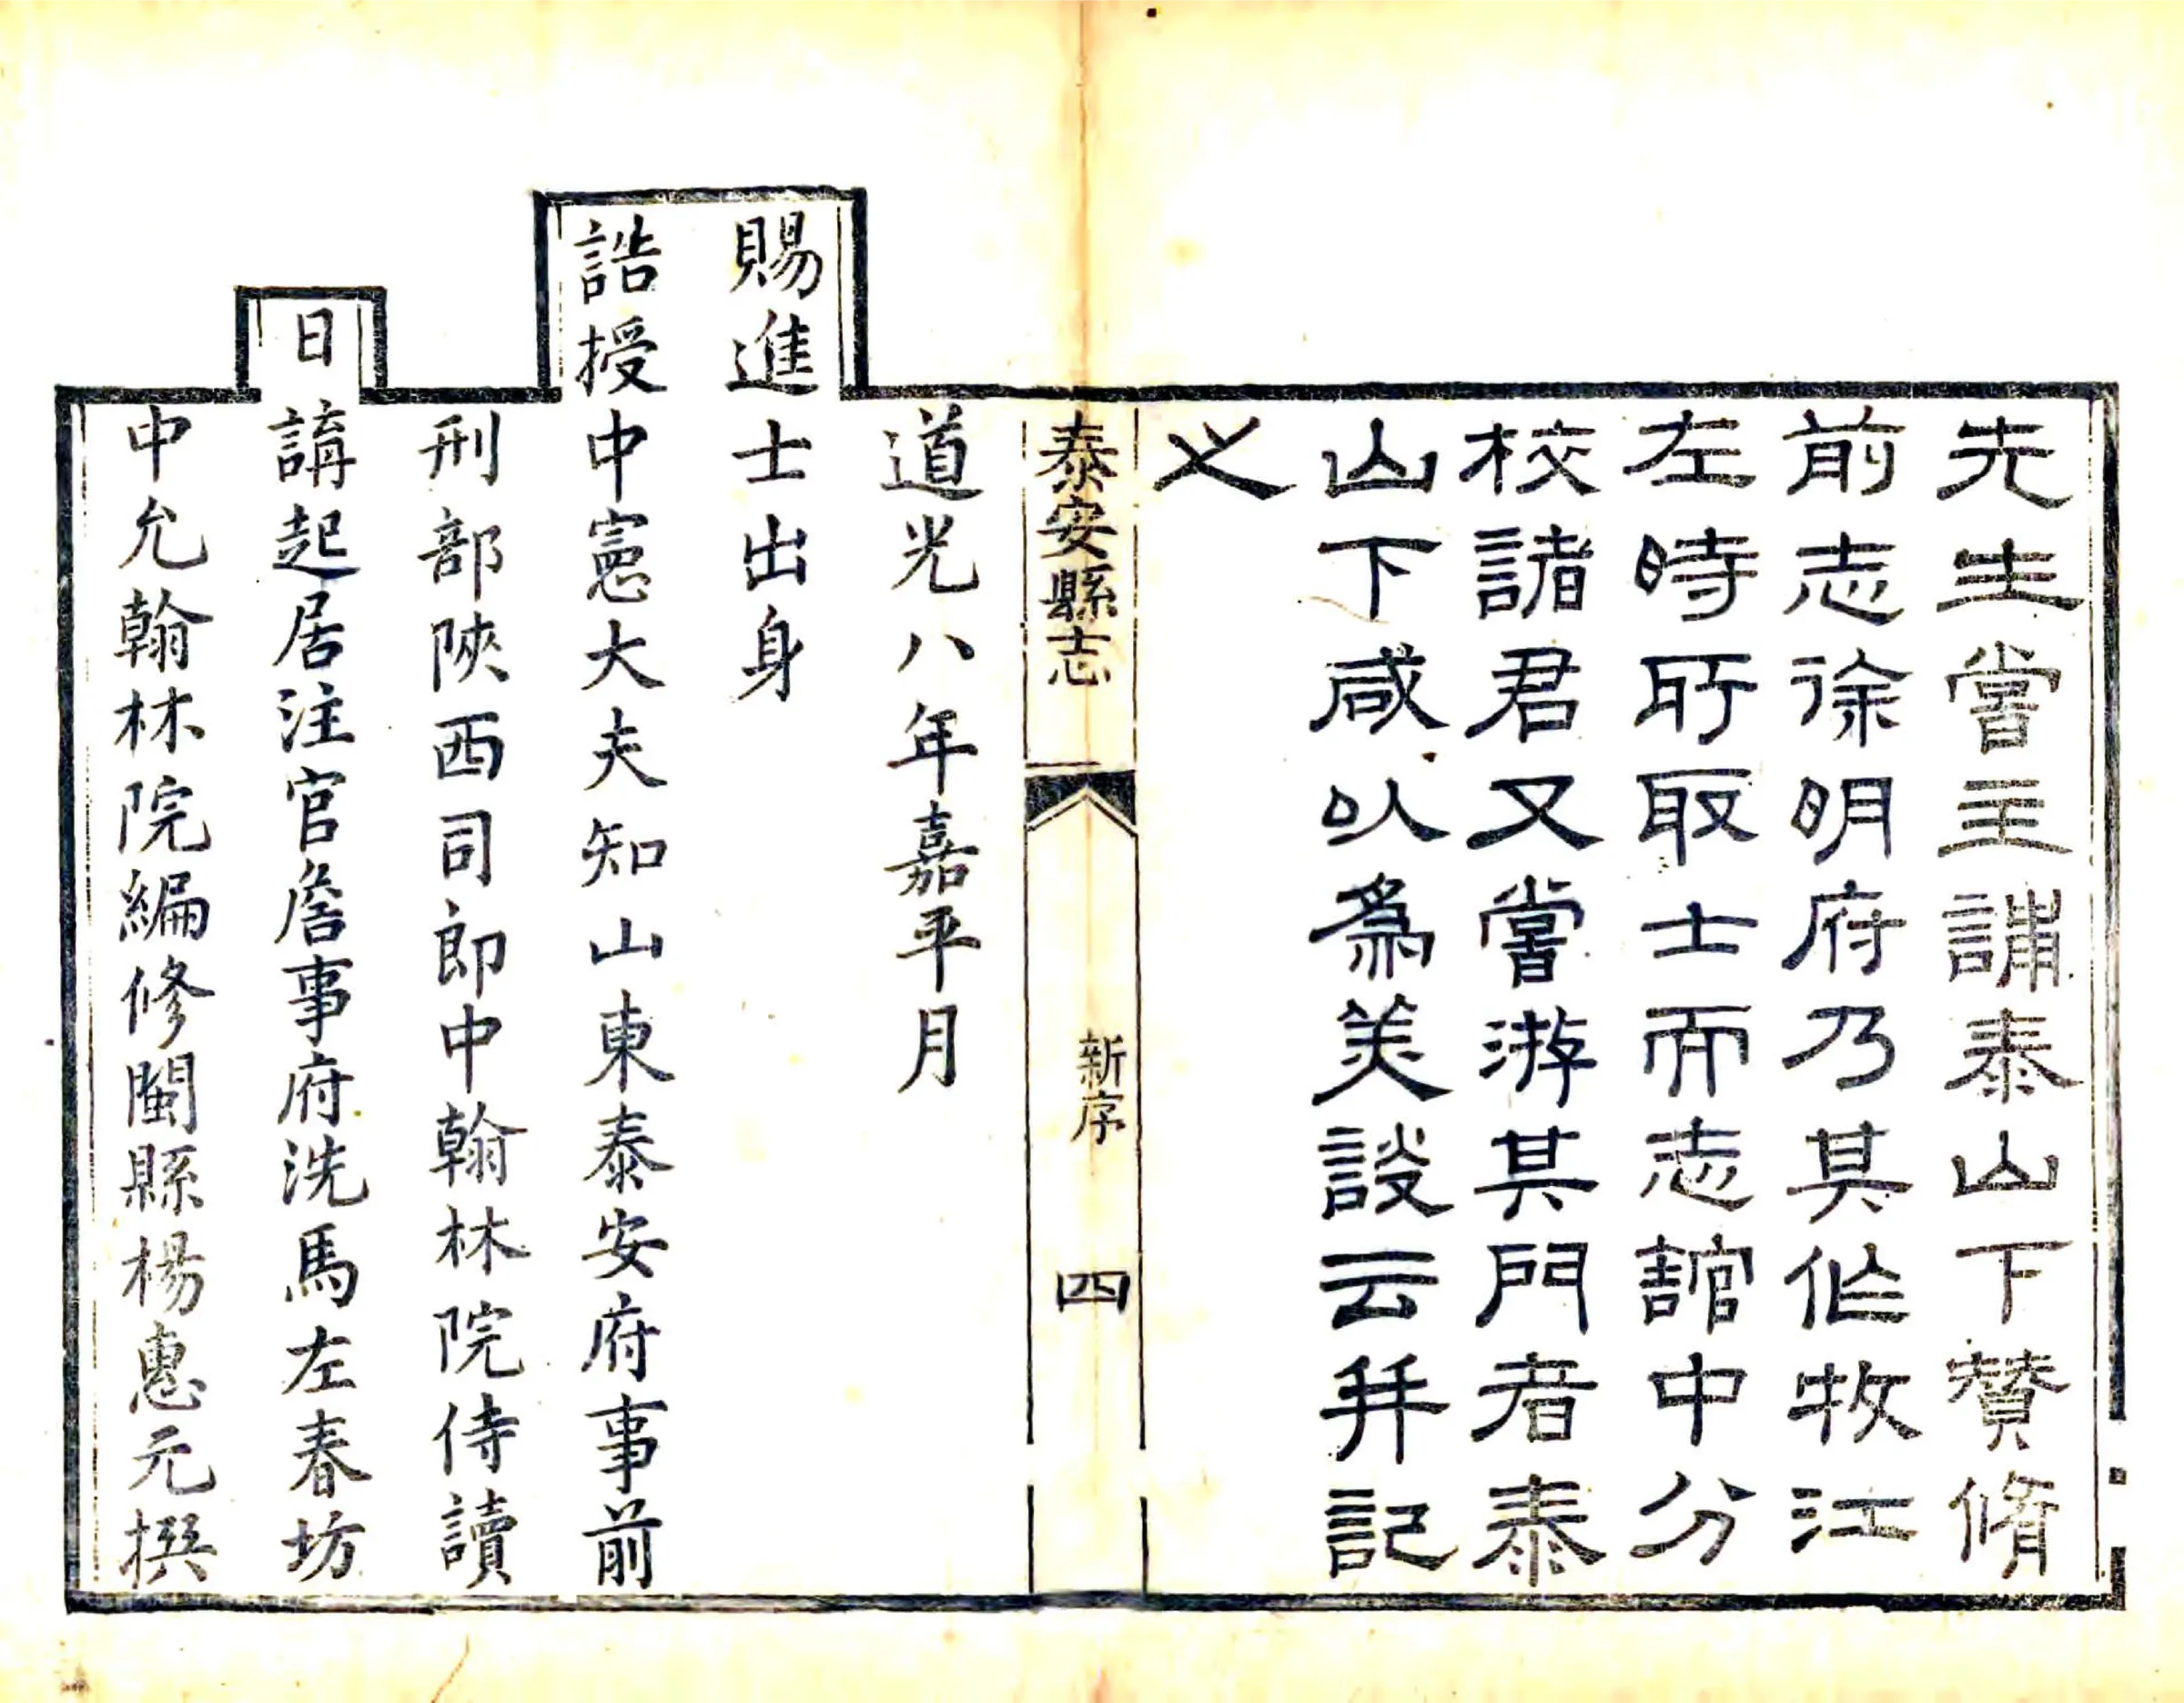 先生嘗主誧泰山下贊脩
前志徐明府乃其倅牧江
左時所取士而志館中分
校諸君又嘗游其門者泰
山下咸以為美談云拜記
之
泰安縣志
新序
四
道光八年嘉平月
賜進士出身
誥授中憲大夫知山東泰安府事前
刑部陝西司郎中翰林院侍讀
日講起居注官詹事府洗馬左春坊
中允翰林院編修閩縣楊惠元撰